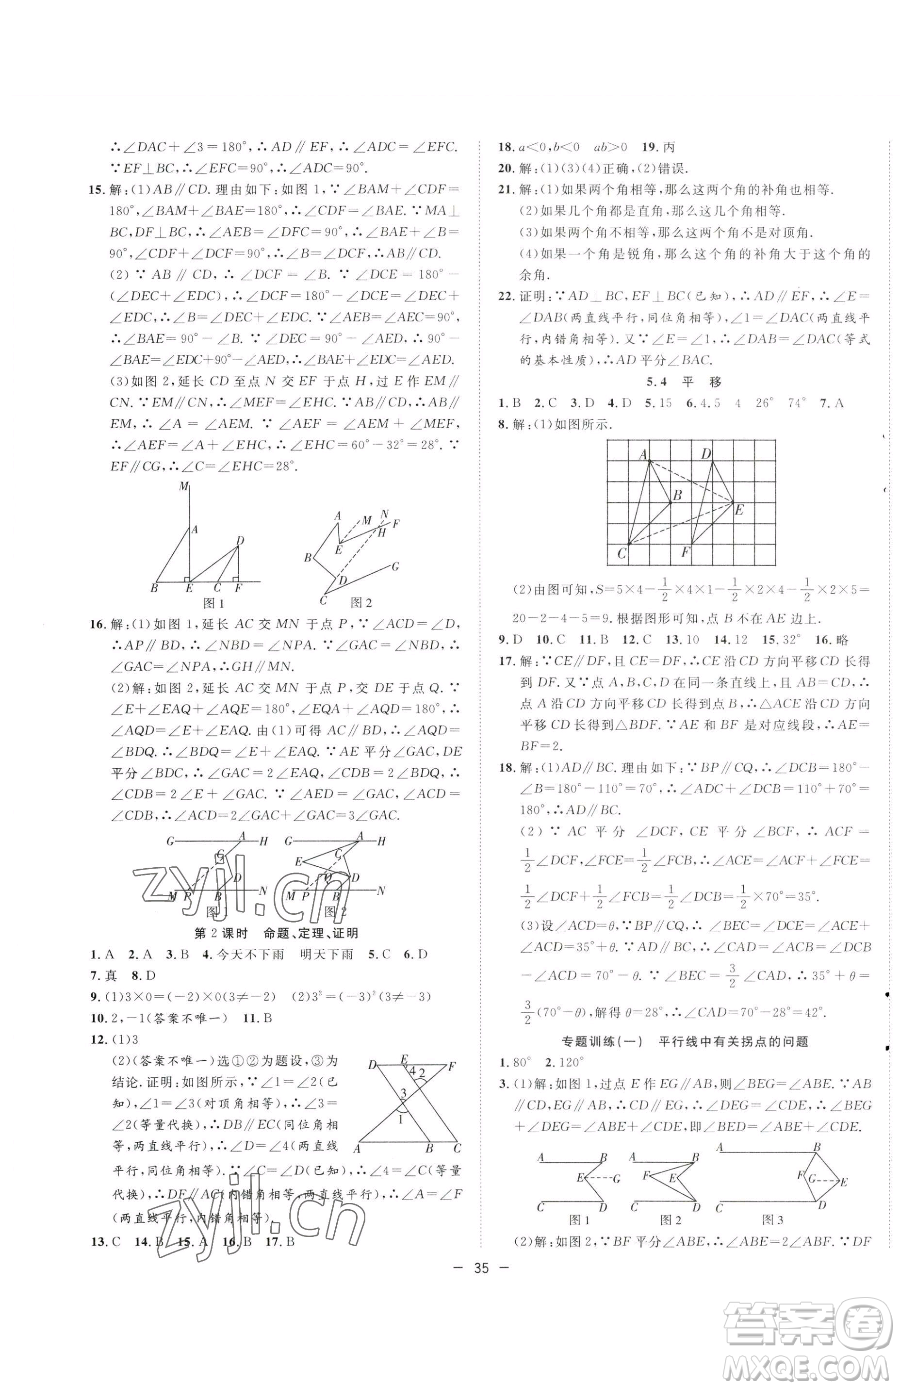 ∴∠DAC+∠3=180°,∴AD∥EF,∴∠ADC=∠EFC.
∵EF⊥BC,∴∠EFC=90°,∴∠ADC=90°.
15.解:(1)AB∥CD.理由如下:如图1,∵∠BAM+∠CDF=
180°,∠BAM+∠BAE=180°,∴∠CDF=∠BAE.∵MA⊥
BC,DF⊥BC,∴∠AEB=∠DFC=90°.∵∠B+∠BAE=
90°,∠CDF+∠DCF=90°,∴∠B=∠DCF,∴AB∥CD.
(2)∵AB∥CD,∴∠DCF=∠B.∵∠DCE=180°-
(∠DEC+∠EDC),∴∠DCF=180°-∠DCE=180°-
(180°-∠DEC-∠EDC)=∠DEC+∠EDC,∴∠B=
∠DEC+∠EDC.∵∠AEB=∠AEC=90°,∴∠BAE=
90°-∠B,∠AED=90°-∠DEC,∴∠BAE=90°-
(∠DEC+∠EDC)=90°-∠DEC-∠EDC,∴∠BAE=
∠AED-∠EDC,∴∠EDC=∠AED-∠BAE.
(3)如图2,延长CD至点N交EF于点H,过E作EM∥
CN.∵EM∥CN,∴∠MEF=∠EHC.∵AB∥CN,∴AB
∥EM,∴∠A=∠AEM.∵∠AEF=∠AEM+∠MEF,
∴∠AEF=∠A+∠EHC,∴∠EHC=60°-32°=28°.∵
EF∥CG,∴∠C=∠EHC=28°.
M
A
D
B
E
C
F
图1
A
M
N
F
H
E
B
D
G
C
图2
16.解:(1)如图1,延长AC交MN于点P,∵∠ACD=∠D,
∴AP∥BD,∴∠NBD=∠NPA.∵∠GAC=∠NBD,
∴∠GAC=∠NPA,∴GH∥MN.
(2)解:如图2,延长AC交MN于点P,交DE于点Q.∵
∠E+∠EAQ+∠AQE=180°,∠EQA+∠AQD=180°,∴
∠AQD=∠E+∠EAQ.由(1)可得AC∥BD,∴∠AQD=
∠BDQ,∴∠BDQ=∠E+∠EAQ.∵AE平分∠GAC,DE
平分∠BDC,∴∠GAC=2∠EAQ,∠CDB=2∠BDQ,∴
∠CDB=2∠E+∠GAC.∵∠AED=∠GAC,∠ACD=
∠CDB,∴∠ACD=2∠GAC+∠GAC=3∠GAC.
G
A
H
C
D
M
P
B
N
图1
G
A
H
E
C
Q
D
M
P
B
N
图2
第2课时 命题、定理、证明
1.A 2.A 3.B 4.今天不下雨 明天下雨 5.C 6.C
7.真 8.D
9.(1)3×0=(-2)×0(3≠-2) (2)3²=(-3)²(3≠-3)
10.2,-1(答案不唯一) 11.B
12.(1)3
(2)(答案不唯一)选①②为题设,③为
结论.证明:如图所示.∵∠1=∠2(已
知),∠1=∠3(对顶角相等),∴∠3=
∠2(等量代换),∴DB∥EC(同位角相
等,两直线平行),∴∠D=∠4(两直线
平行,同位角相等).∵∠D=∠C(已知),∴∠4=∠C(等量
代换),∴DF∥AC(内错角相等,两直线平行),∴∠A=∠F
(两直线平行,内错角相等).
D
E
F
4
2
3
1
A
B
C
13.C 14.B 15.A 16.B 17.B
18.a<0,b<0 ab>0 19.丙
20.解:(1)(3)(4)正确,(2)错误.
21.解:(1)如果两个角相等,那么这两个角的补角也相等.
(2)如果几个角都是直角,那么这几个角相等.
(3)如果两个角相等,那么这两个角不是对顶角.
(4)如果一个角是锐角,那么这个角的补角大于这个角的
余角.
22.证明:∵AD⊥BC,EF⊥BC(已知),∴AD∥EF,∴∠E=
∠DAB(两直线平行,同位角相等),∠1=∠DAC(两直线平
行,内错角相等).∵∠E=∠1(已知),∴∠DAB=∠DAC(等式
的基本性质),∴AD平分∠BAC.
5.4 平 移
1.B 2.C 3.D 4.D 5.15 6.4.5 4 26° 74° 7.A
8.解:(1)如图所示.
A
D
B
E
C
F
(2)由图可知,S=5×4-1/2×4×1-1/2×2×4-1/2×5×2=
20-2-4-5=9.根据图形可知,点B不在AE边上.
9.D 10.C 11.C 12.C 13.10 14.12 15.32° 16.略
17.解:∵CE∥DF,且CE=DF,∴CE沿CD方向平移CD长得
到DF.又∵A,B,C,D在同一条直线上,且AB=CD,∴
点A沿CD方向平移CD长得到点B,∴△ACE沿CD方向
平移CD长得到△BDF.∵AE和BF是对应线段,∴AE=
BF=2.
18.解:(1)AD∥BC.理由如下:∵BP∥CQ,∴∠DCB=180°-
∠B=180°-110°=70°.∵∠D=110°,∴∠D+∠DCB=
180°,∴AD∥BC.
(2)∵AC平分∠DCF,CE平分∠BCF,∴∠ACF=
1/2∠DCF,∠FCE=1/2∠BCF,∴∠ACF+∠FCE=
1/2∠DCF+1/2∠BCF=1/2∠DCB=1/2×70°=35°.
(3)设∠ACD=θ,∵AB∥CD,∴∠BAC=∠ACD=θ,
∴∠CAD=70°-θ.∵∠BEC=3/2∠CAD,∴35°+θ=
3/2(70°-θ),解得θ=28°,∴∠CAD=70°-28°=42°.
专题训练(一) 平行线中有关拐点的问题
1.80° 2.120°
3.(1)解:如图1,过点E作EG∥AB,则∠BEG=∠ABE.∵AB
∥CD,EG∥AB,∴CD∥EG,∴∠DEG=∠CDE,∴∠BEG+
∠DEG=∠ABE+∠CDE,即∠BED=∠ABE+∠CDE.
A
B
E
G
C
D
图1
A
B
F
E
C
D
图2
A
B
F
G
E
C
D
图3
(2)解:如图2,∵BF平分∠ABE,∴∠ABE=2∠ABF.∵DF
— 35 —
zyjl.cn
zyjl.cn
答案圈
MXQE.COM